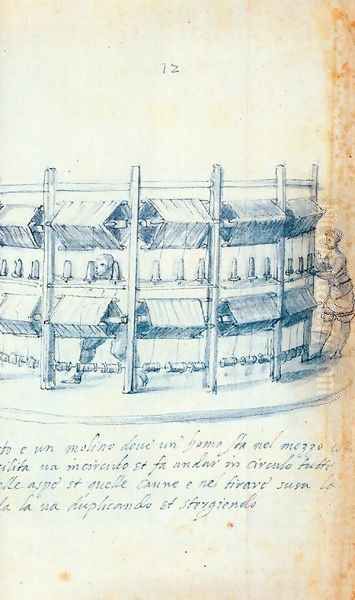 12
to e un molino dove un homo sta nel mezzo
ilita va in circulo et fa andar in circulo tutti
elle aspe et quelle caune e nel tirare susa la
la la va duplicando et storgiendo